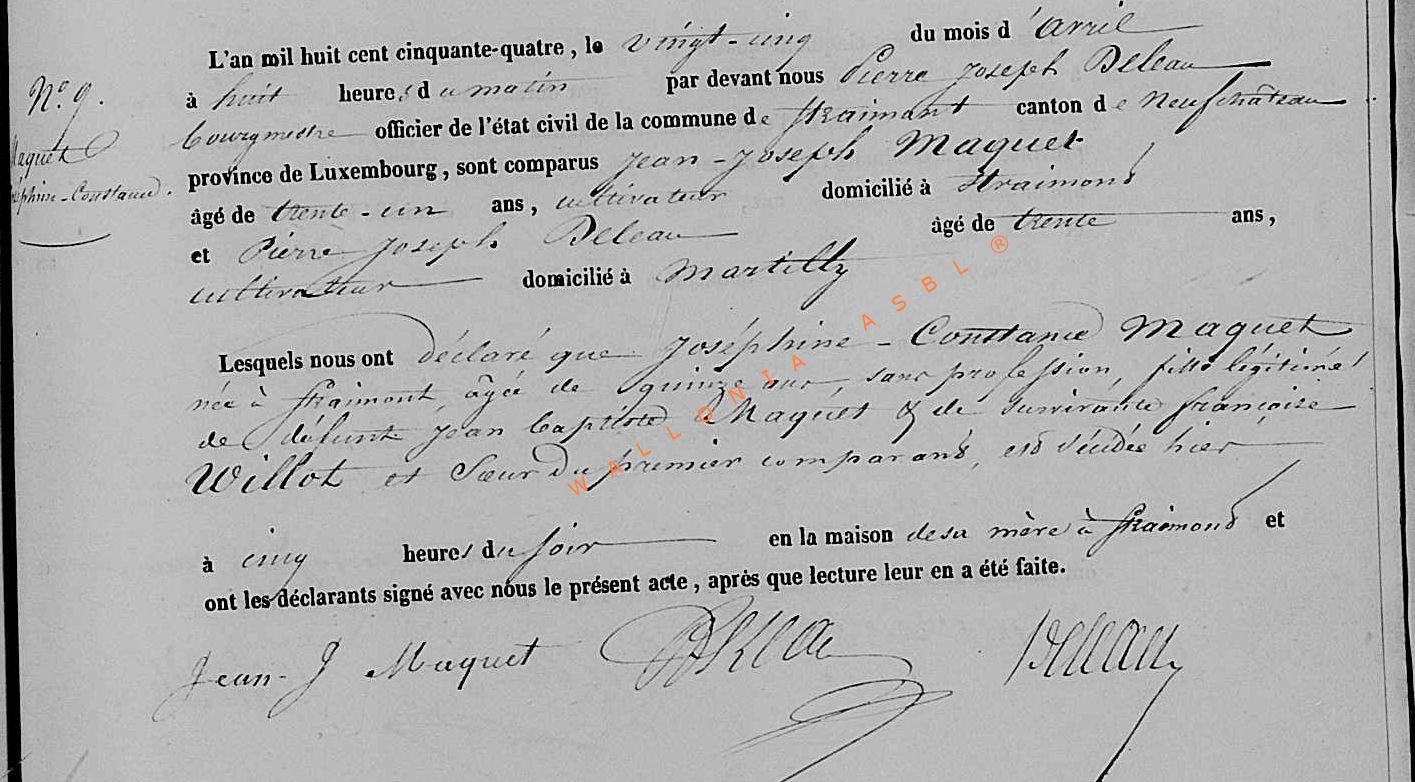 L'an mil huit cent cinquante-quatre, le vingt-cinq du mois d'avril
N.° 9.
à huit heures du matin par devant nous Pierre Joseph Deleau
bourgmestre officier de l'état civil de la commune de Straimont canton de Neufchâteau
Maquet
province de Luxembourg, sont comparus Jean-Joseph Maquet
Joséphine-Constance.
âgé de trente-un ans, cultivateur domicilié à Straimont
et Pierre Joseph Deleau âgé de trente ans,
cultivateur domicilié à Martilly
Lesquels nous ont déclaré que Joséphine-Constance Maquet
née à Straimont, âgée de quinze ans, sans profession, fille légitime
de défunt Jean Baptiste Maquet & de survivante françoise
Willot et Sœur du premier comparant, est décédée hier
à cinq heures du soir en la maison de sa mère à Straimont et
ont les déclarants signé avec nous le présent acte, après que lecture leur en a été faite.
Jean-J Maquet Deleau
WALLONIA ASBL ®